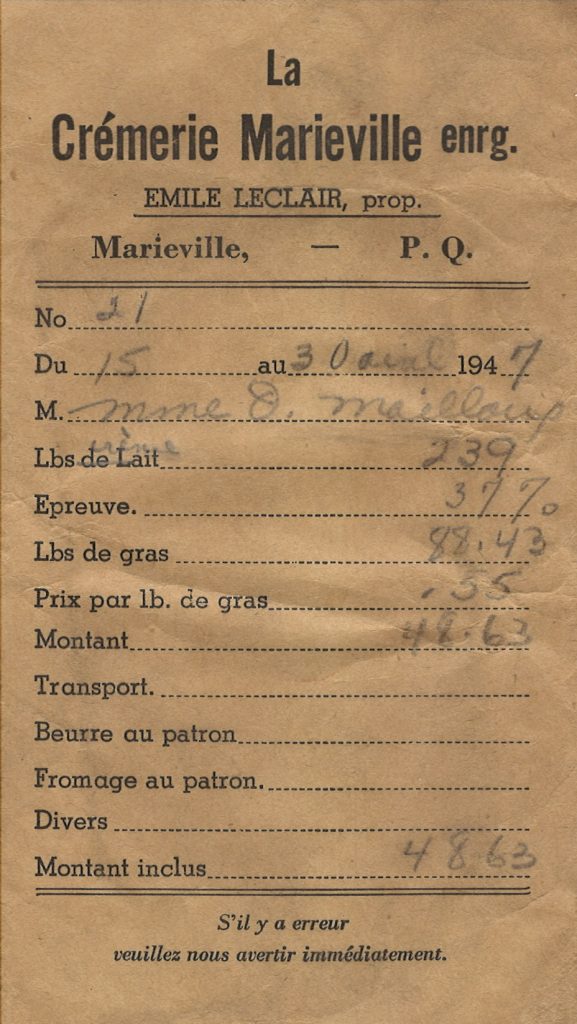 La
Crémerie Marieville enrg.
EMILE LECLAIR, prop.
Marieville, — P. Q.
No 21
Du 15 au 30 avril 1947
M. mme D. Mailloux
crème
Lbs de Lait 239
Epreuve. 37%
Lbs de gras 88.43
Prix par lb. de gras .55
Montant 48.63
Transport.
Beurre au patron
Fromage au patron.
Divers
Montant inclus 48.63
S'il y a erreur
veuillez nous avertir immédiatement.